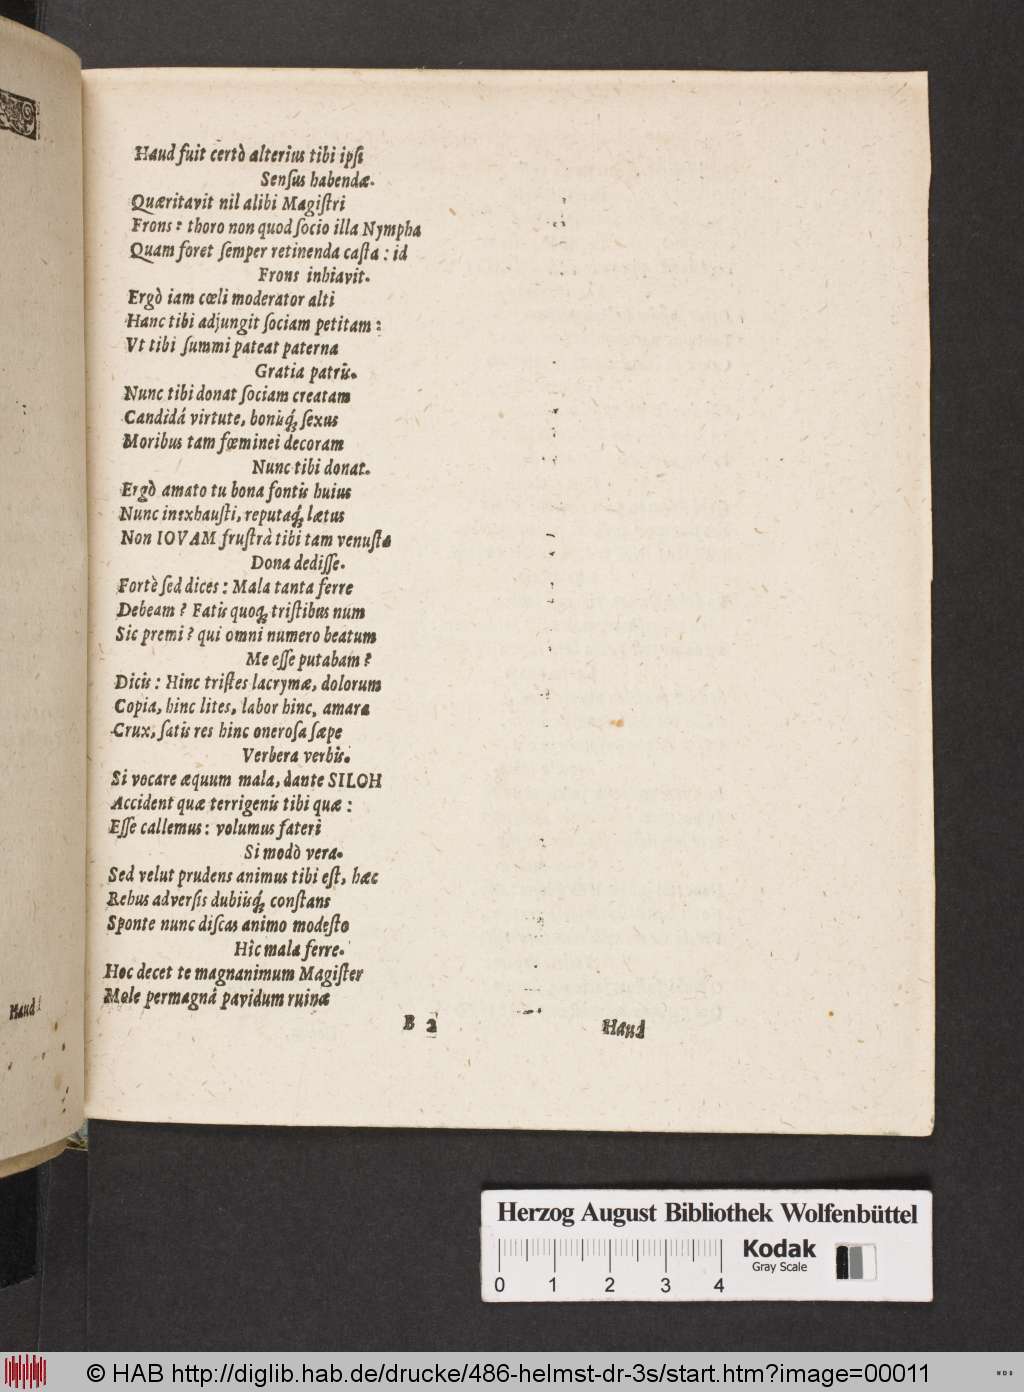 Haud fuit certò alterius tibi ipſi
Senſus habendæ.
Quæritavit nil alibi Magiſtri
Frons: thoro non quod ſocio illa Nympha
Quam foret ſemper retinenda caſta: id
Frons inhiavit.
Ergò iam cœli moderator alti
Hanc tibi adjungit ſociam petitam:
Vt tibi ſummi pateat paterna
Gratia patris.
Nunc tibi donat ſociam creatam
Candidâ virtute, boniſq́; ſexus
Moribus tam fœminei decoram
Nunc tibi donat.
Ergò amato tu bona fontis huius
Nunc inexhauſti, reputaq́; lætus
Non IOVAM fruſtrà tibi tam venuſta
Dona dediſſe.
Fortè ſed dices: Mala tanta ferre
Debeam? Fatis quoq; triſtibus num
Sic premi? qui omni numero beatum
Me eſſe putabam?
Dicis: Hinc triſtes lacrymæ, dolorum
Copia, hinc lites, labor hinc, amara
Crux, ſatis res hinc oneroſa ſæpe
Verbera verbis.
Si vocare æquum mala, dante SILOH
Accident quæ terrigenis tibi quæ:
Eſſe callemus: volumus fateri
Si modò vera.
Sed velut prudens animus tibi eſt, hæc
Rebus adverſis dubiiſq́; conſtans
Sponte nunc diſcas animo modeſto
Hîc mala ferre.
Hoc decet te magnanimum Magiſter
Mole permagnâ pavidum ruinæ
B 2 Haud
Haud
Herzog August Bibliothek Wolfenbüttel
0 1 2 3 4
Kodak
Gray Scale
© HAB http://diglib.hab.de/drucke/486-helmst-dr-3s/start.htm?image=00011